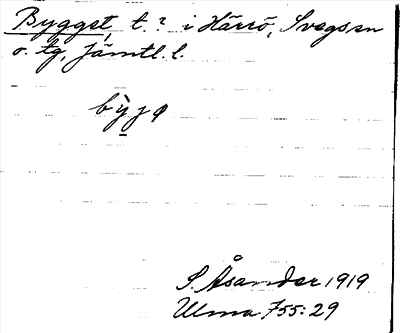 Bygget, t.? i Härrö, Svegs sn
o. tg, Jämtl. l.
bỳjə
S. Åsander 1919
Ulma 755:29